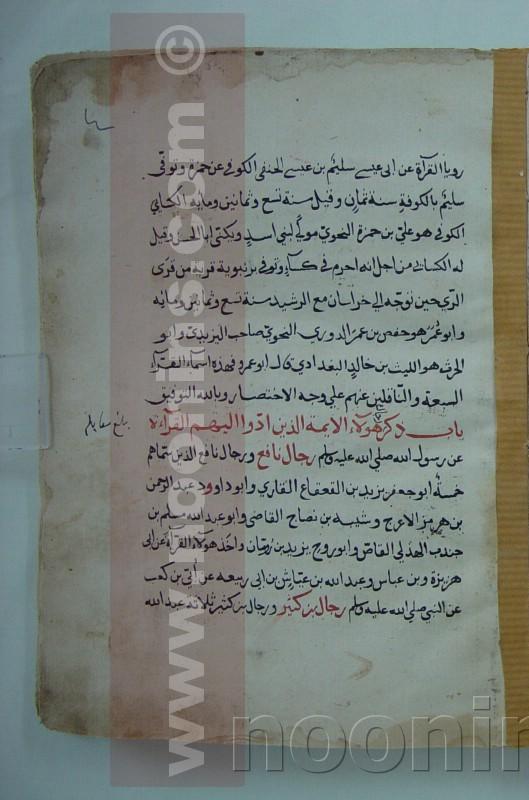 رويا القرآة عن ابى عيسے سليم بن عيسے الحنفى الكوفى عن حمزة وتوفى
سليم بالكوفة سنة ثمان وقيل سنة تسع وثمانين ومايه الكسايي
الكوفى هو علي بن حمزة النحوي مولى لبني اسد ويكنى ابا الحسن وقيل
له الكساى من اجل انه احرم في كساء وتوفى برنبوية قرية من قرى
الرى حين توجه الى خراسان مع الرشيد سنة تسع وثمانين ومايه
وابو عمر هو حفص بن عمر الدوري النحوي صاحب اليزيدى وابو
الحرث هو الليث بن خالد البغدادي قال ابو عمرو فهذه اسماء القرآء
السبعة والناقلين عنهم على وجه الاختصار وبالله التوفيق
باب ذكر هولاء الايمة الذين ادوا اليهم القرآءة
عن رسول الله صلى الله عليه وسلم رجال نافع ورجال نافع الذين سماهم
خمسة ابو جعفر يزيد بن القعقاع القاري وابو داوود عبد الرحمن
بن هرمز الاعرج وشيبه بن نصاح القاضى وابو عبد الله مسلم بن
جندب الهذلي القاص وابو روح يزيد بن رومان واخذ هولاء القرآة عن ابى
هريرة وبن عباس وعبد الله بن عياش بن ابى ربيعه عن ابى بن كعب
عن النبي صلى الله عليه وسلم رجال بن كثير ورجال بن كثير ثلاثه عبد الله
www.noorirs.com ©
noonin